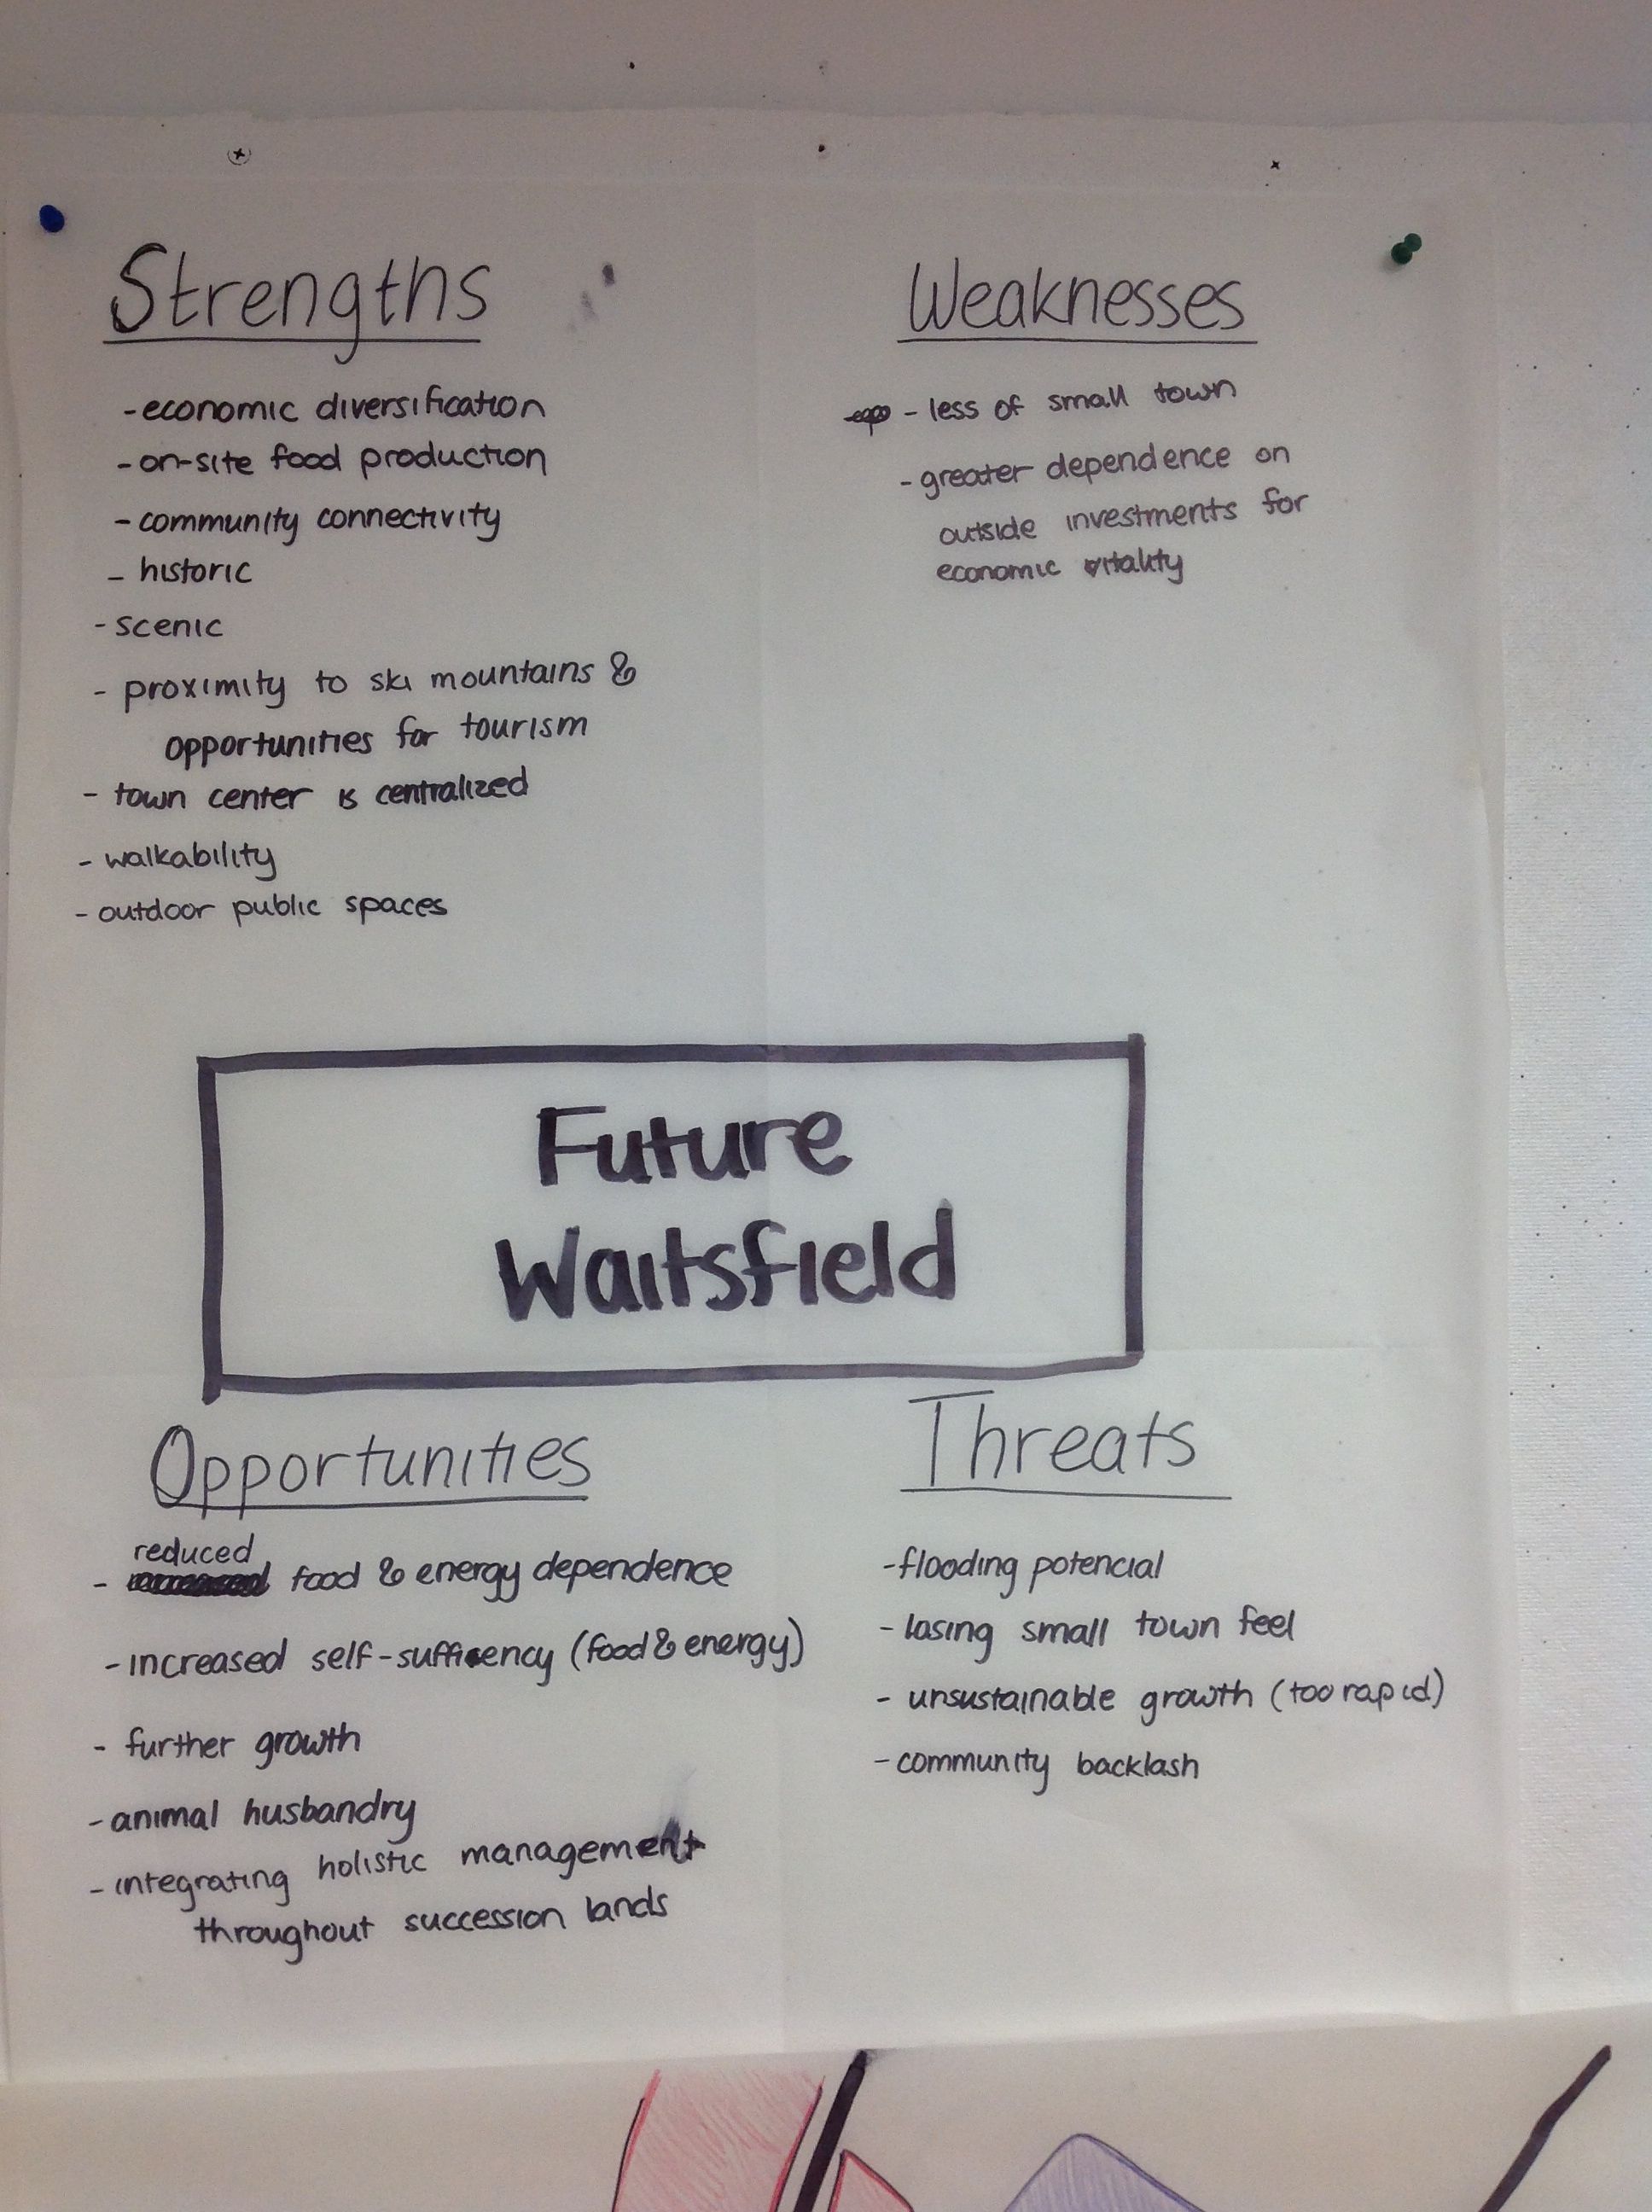 Strengths
- economic diversification
- on-site food production
- community connectivity
- historic
- scenic
- proximity to ski mountains &
opportunities for tourism
- town center is centralized
- walkability
- outdoor public spaces
Weaknesses
- less of small town
- greater dependence on
outside investments for
economic vitality
Future
Waitsfield
Opportunities
reduced
- food & energy dependence
- increased self-sufficency (food & energy)
- further growth
- animal husbandry
- integrating holistic management
throughout succession lands
Threats
- flooding potencial
- losing small town feel
- unsustainable growth (too rapid)
- community backlash